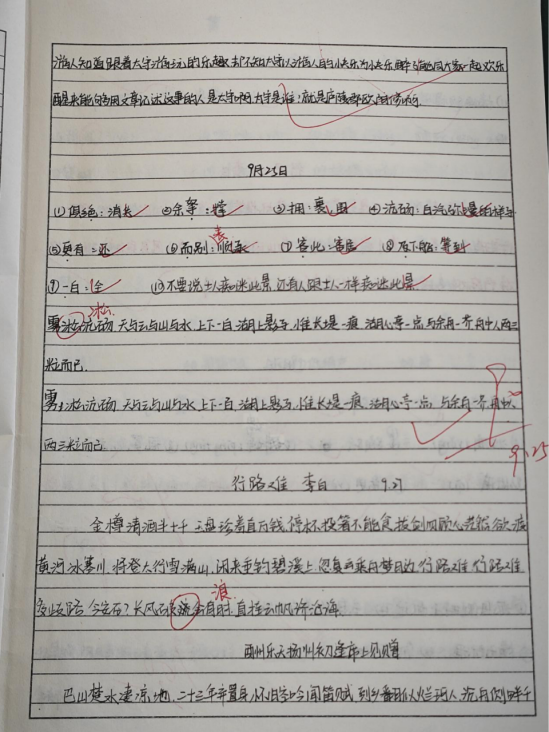 游人知道跟着太守游玩的乐趣 却不知太守以游人的快乐为快乐 醉了能同大家一起欢乐
醒来能够用文章记述这事的人是太守啊 太守是谁:就是庐陵郡欧阳修
9月25日
(1)俱绝:消失 (2)余拏:撑 (3)拥:裹、围 (4)沆砀:白汽弥漫的样子
(5)更有:还 (6)而别:顺承 表 (7)客此:客居 (8)及下船:等到
(9)一白:全 (10)不要说士人痴迷此景,还有人跟士人一样痴迷此景
雾淞沆砀 天与云与山与水 上下一白 湖上影子,惟长堤一痕 湖心亭一点 与余舟一芥 舟中人两三
淞
粒而已
雾淞沆砀 天与云与山与水 上下一白 湖上影子,惟长堤一痕 湖心亭一点 与余舟一芥 舟中人
两三粒而已
9.25
行路难 李白 9.27
金樽清酒斗十千 玉盘珍羞直万钱 停杯投箸不能食 拔剑四顾心茫然 欲渡
黄河冰塞川 将登太行雪满山 闲来垂钓碧溪上 忽复乘舟梦日边 行路难 行路难
浪
多歧路 今安在?长风破 会有时 直挂云帆济沧海
酬州乐天扬州初逢席上见赠
巴山楚水凄凉地 二十三年弃置身 怀旧空吟闻笛赋 到乡翻似烂柯人 沉舟侧畔千